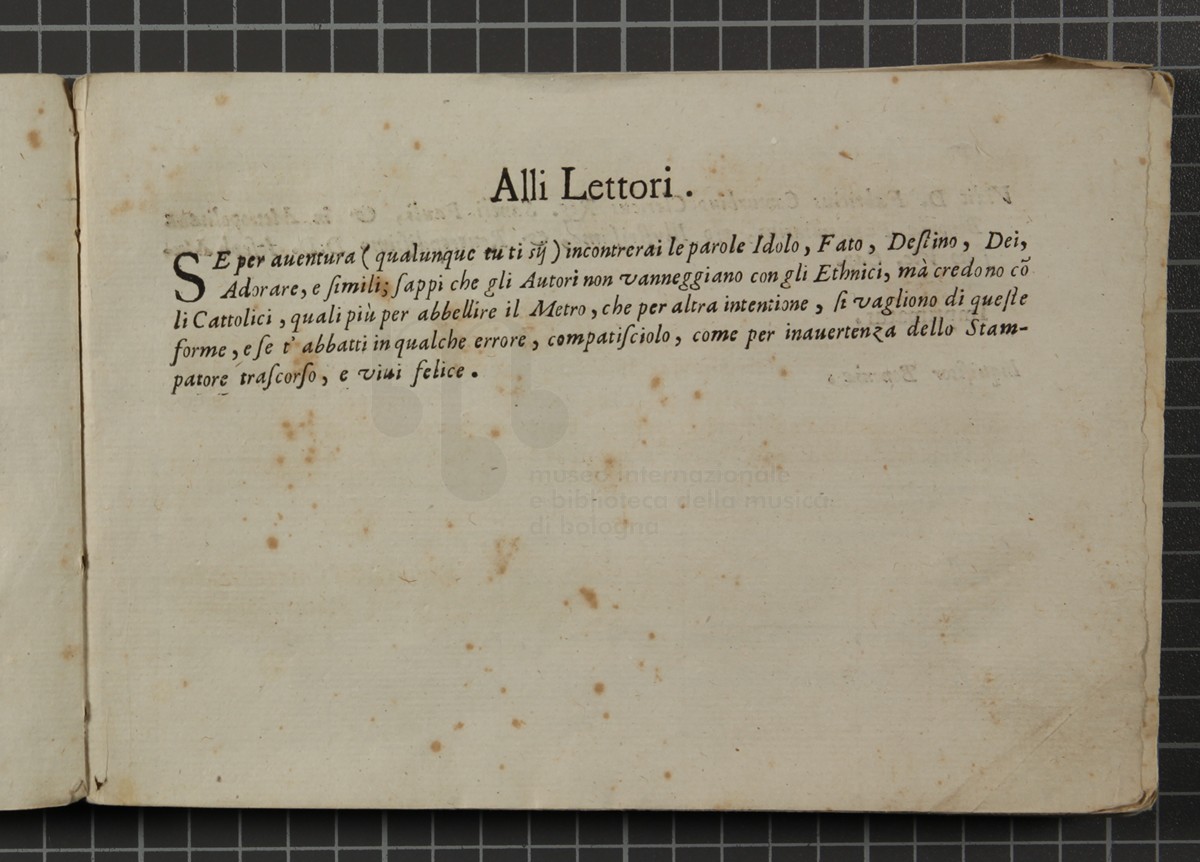 Alli Lettori .
SE per auentura ( qualunque tu ti sij ) incontrerai le parole Idolo , Fato , Deſtino , Dei,
Adorare, e ſimili; ſappi che gli Autori non vanneggiano con gli Ethnici, mà credono cõ
li Cattolici , quali più per abbellire il Metro, che per altra intentione , ſi vagliono di queſte
forme , e ſe t' abbatti in qualche errore , compatiſciolo , come per inauertenza dello Stam-
patore traſcorſo , e viui felice .
museo internazionale
e biblioteca della musica
di bologna